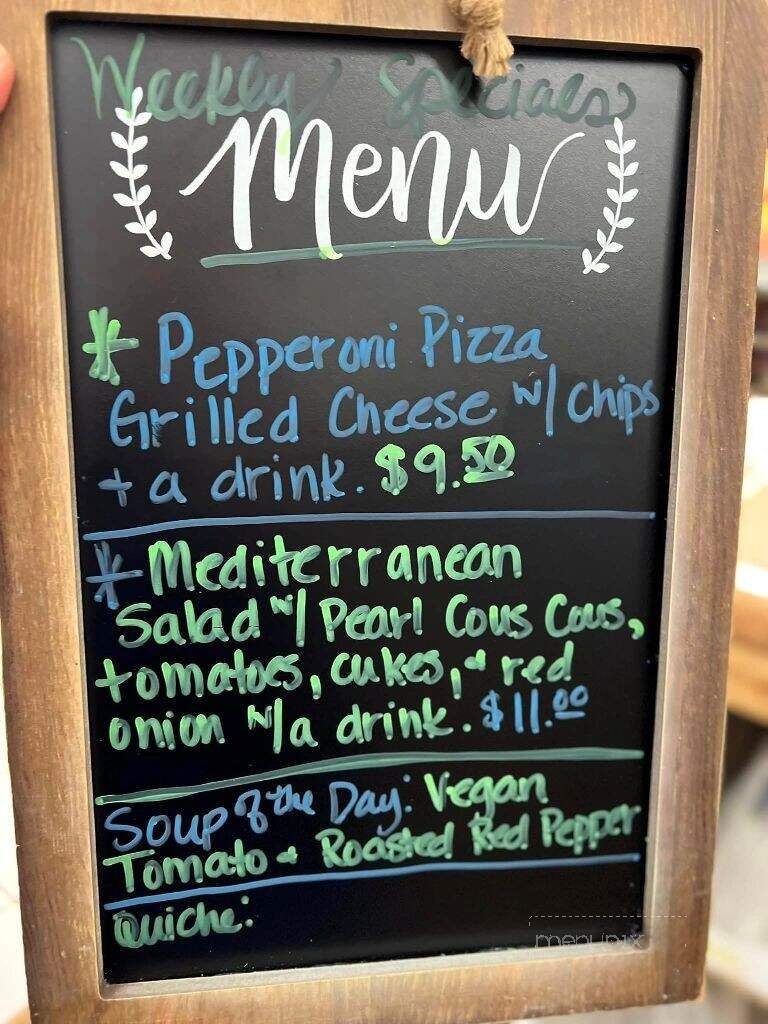 Weekly Specials
Menu
* Pepperoni Pizza
Grilled Cheese w/ chips
+ a drink. $9.50
* Mediterranean
Salad w/ Pearl Cous Cous,
tomatoes, cukes, & red
onion w/a drink. $11.00
Soup of the Day: Vegan
Tomato & Roasted Red Pepper
Quiche:
menupix